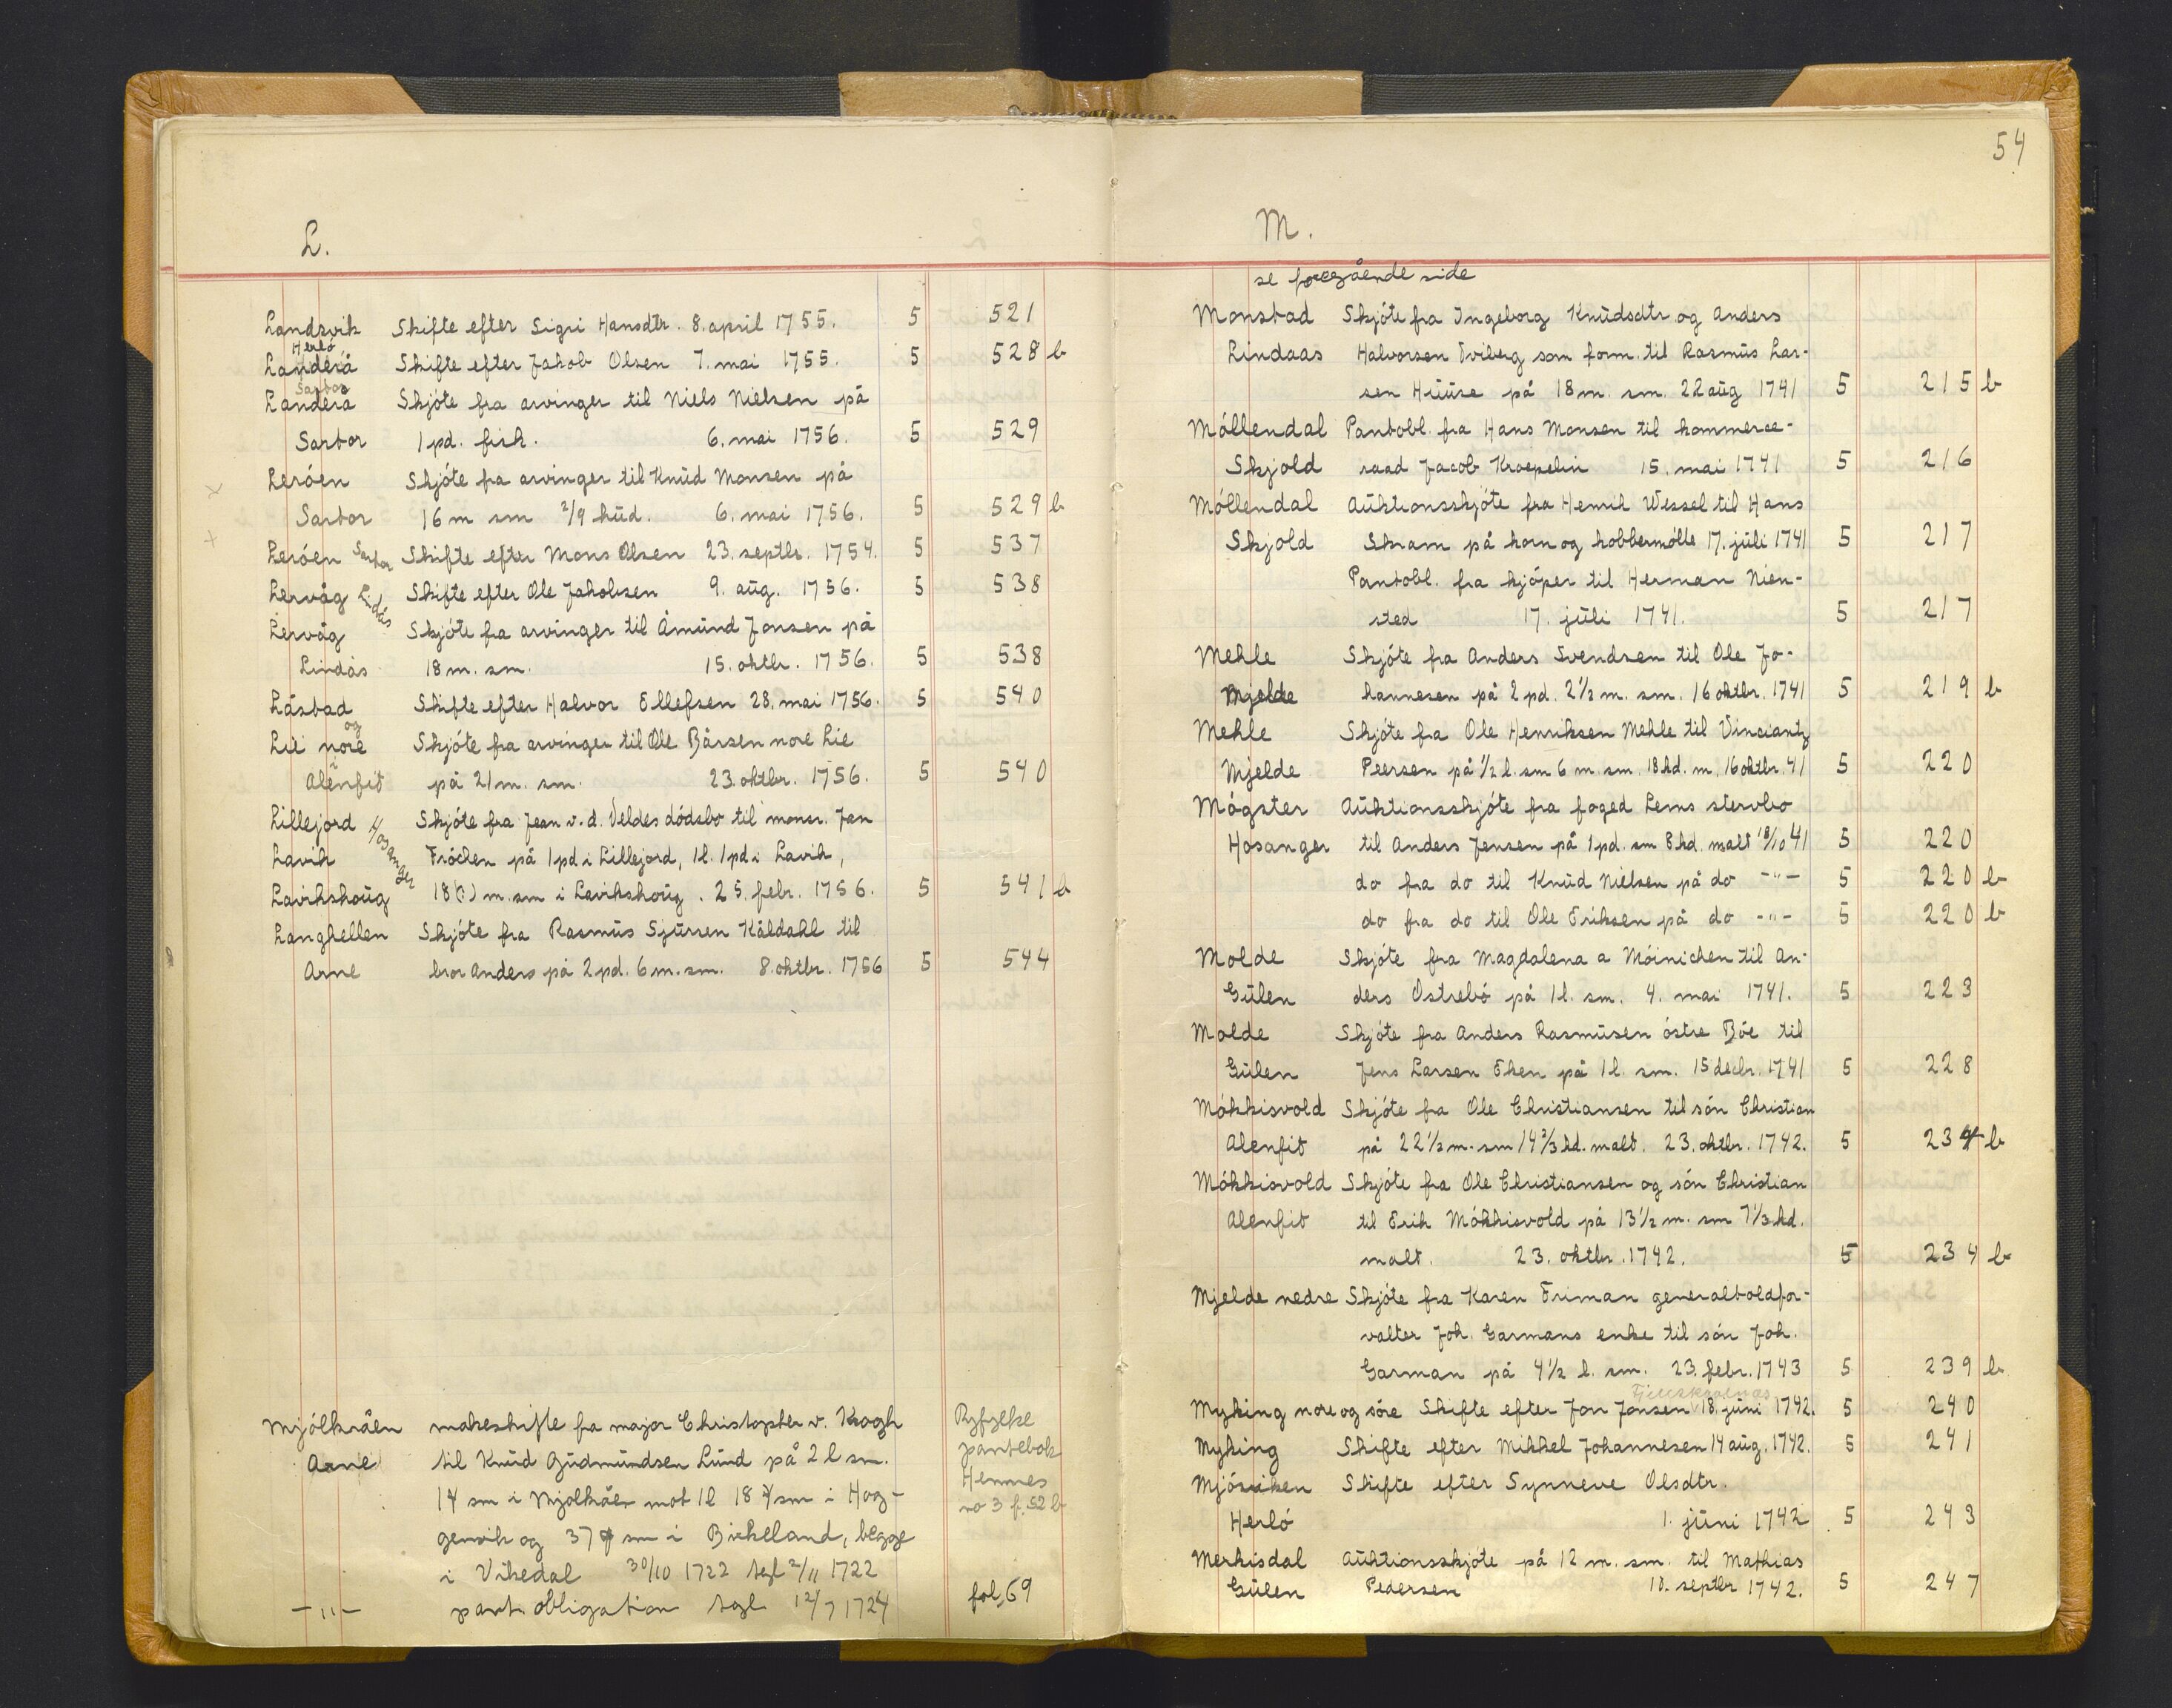 L.
Landsvik Skifte efter Sigri Hansdtr. 8. april 1755. 5 521
Herlö
Landerå Skifte efter Jakob Olsen 7. mai 1755. 5 528 b
Sartor
Landerå Skjöte fra arvinger til Niels Nielsen på
Sartor 1 pd. fisk. 6. mai 1756. 5 529
x Leröen Skjöte fra arvinger til Knud Monsen på
Sartor 16 m sm 2/9 hud. 6. mai 1756. 5 529 b
+ Leröen Sartor Skifte efter Mons Olsen 23. septbr. 1754. 5 537
Lervåg Lindås Skifte efter Ole Jakobsen 9. aug. 1756. 5 538
Lervåg Skjöte fra arvinger til Åmund Jonsen på
Lindås 18 m. sm. 15. oktbr. 1756. 5 538
Låstad Skifte efter Halvor Ellefsen 28. mai 1756. 5 540
og
Lii nore Skjöte fra arvinger til Ole Bårsen nore Lie
Alenfit på 21 m. sm. 23. oktbr. 1756. 5 540
Lillejord Hosanger Skjöte fra Jean v. d. Veldes dödsbo til monsr. Jan
Lavik Fröchen på 1 pd i Lillejord, 1 l. 1 pd i Lavik,
Lavikshoug 18 (?) m. sm i Lavikshoug. 25. febr. 1756. 5 541 b
Langhellen Skjöte fra Rasmus Sjursen Kåldahl til
Arne bror Anders på 2 pd. 6 m. sm. 8. oktbr. 1756 5 544
Mjölkråen makeskifte fra major Christopher v. Krogh Ryfylke
Arne til Knud Gudmundsen Lund på 2 l sm. pantebok
Hennes
14 sm i Mjolkråen mot 1 l 18 # sm i Hog- no 3 f. 52 b
gensvik og 37 # sm i Birkeland, begge
i Vikedal 30/10 1722 tgl 2/11 1722
-"- pant. obligation tgl. 12/7 1724 fol. 69
54
M.
se foregående side
Monstad Skjöte fra Ingeborg Knudsdtr og Anders
Lindaas Halvorsen Tviberg som form. til Rasmus Lar-
sen Huuse på 18 m. sm. 22 aug 1741 5 215 b
Möllendal Pantobl. fra Hans Monsen til kommerce-
Skjold raad Jacob Kroepelin 15. mai 1741 5 216
Möllendal Auktionsskjöte fra Henrik Wessel til Hans
Skjold Skram på korn og kobbermölle 17. juli 1741 5 217
Pantobl. fra kjöper til Herman Nien-
sted 17. juli 1741. 5 217
Mehle Skjöte fra Anders Svendsen til Ole Jo-
Mjelde hannesen på 2 pd. 2 1/2 m. sm. 16 oktbr. 1741 5 219 b
Mehle Skjöte fra Ole Henriksen Mehle til Vinciantz
Mjelde Peersen på 1/2 l. sm 6 m sm. 18 kd. m. 16 oktbr. 41 5 220
Mögster Auktionsskjöte fra foged Lems stervbo
Hosanger til Anders Jensen på 1 pd. sm 8 kd. malt 18/10 41 5 220
do fra do til Knud Nielsen på do -"- 5 220 b
do fra do til Ole Eriksen på do -"- 5 220 b
Molde Skjöte fra Magdalena a Möinichen til An-
Gulen ders Ostrebö på 1 l. sm. 4. mai 1741. 5 223
Molde Skjöte fra Anders Rasmusen östre Böe til
Gulen Jens Larsen Eken på 1 l. sm. 15 decbr. 1741 5 228
Mökkisvold Skjöte fra Ole Christiansen til sön Christian
Alenfit på 22 1/2 m. sm 14 2/3 kd. malt. 23. oktbr. 1742. 5 234 b
Mökkisvold Skjöte fra Ole Christiansen og sön Christian
Alenfit til Erik Mökkisvold på 13 1/2 m. sm 7 1/3 kd.
malt. 23. oktbr. 1742. 5 234 b
Mjelde nedre Skjöte fra Karen Friman generaltoldfor-
valter Joh. Garmans enke til sön Joh.
Garman på 4 1/2 l. sm. 23. febr. 1743 5 239 b
Myking nore og söre Skifte efter Jon Jonsen 18. juni 1742. 5 240
Myking Skifte efter Mikkel Johannesen 14 aug. 1742. 5 241
Mjösviken Skifte efter Synneve Olsdtr.
Herlö 1. juni 1742 5 243
Merkisdal Auktionsskjöte på 12 m. sm. til Mathias
Gulen Pedersen 10. septbr 1742. 5 247